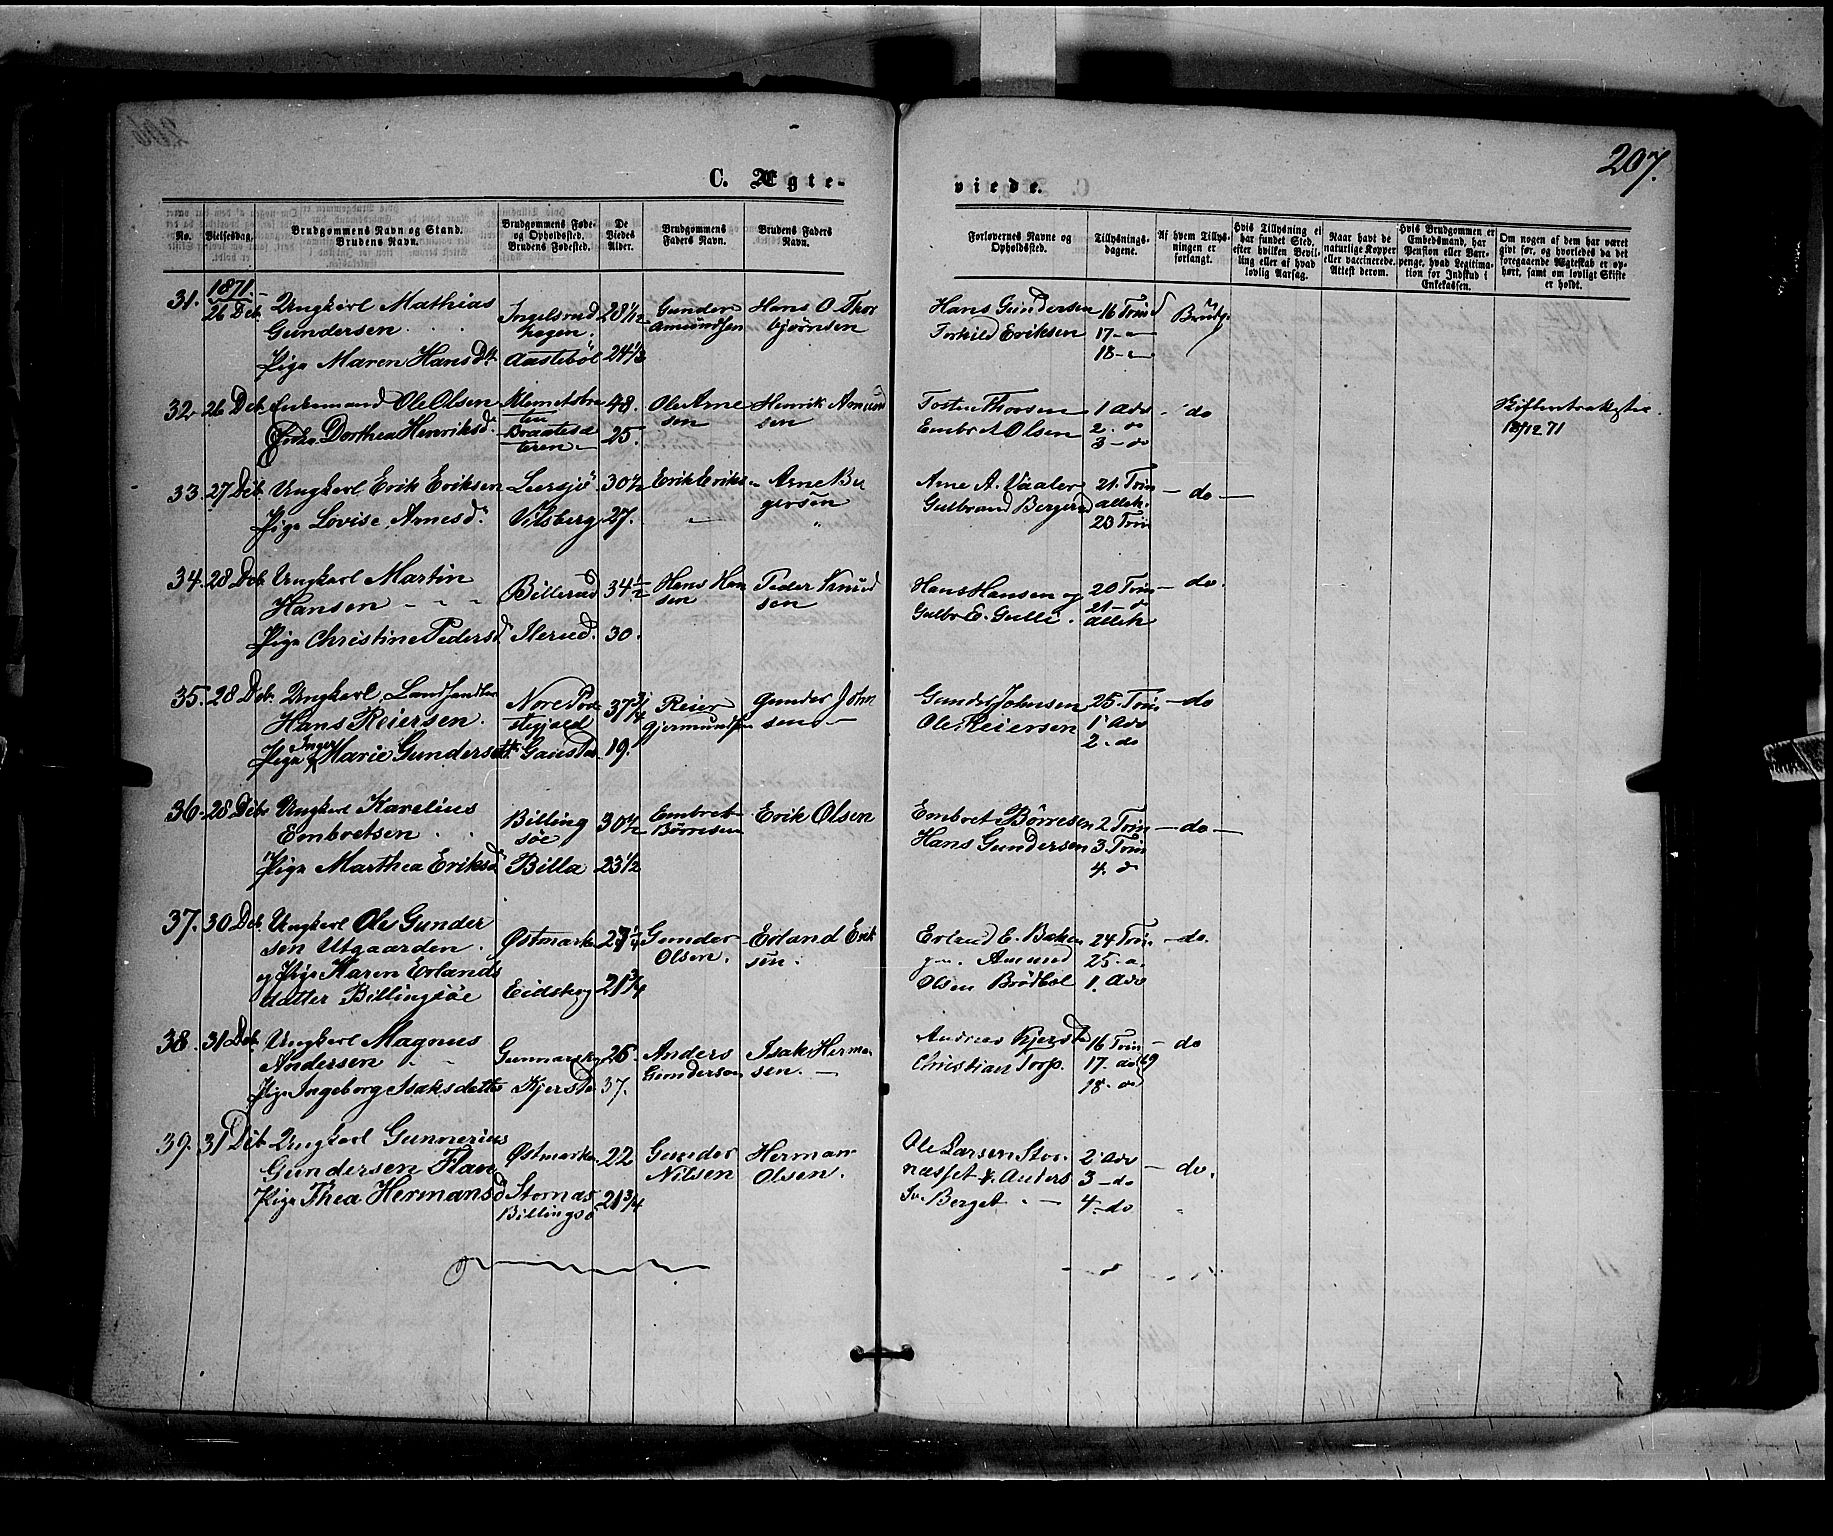 207.
C. Ægte-
viede.
No.
Vielsesdag.
Brudgommens Navn og Stand.
Brudens Navn.
Brudgommens Føde-
og Opholdssted.
Brudens Fødested.
De
Viedes
Alder.
Brudgommens
Faders Navn.
Brudens Faders
Navn.
Forlovernes Navne og
Opholdssted.
Tillysnings-
dagene.
Af hvem Tillys-
ningen er
forlangt.
Hvis Tillysning ei
har fundet Sted,
efter hvilken Bevil-
ling eller af hvad
lovlig Aarsag.
Naar havt de
naturlige Kopper
eller vaccinerede.
Attest derom.
Hvis Brudgommen er
Embedsmand, har han
Pension eller Vart-
penge, hvad Legitima-
tion for Indskud i
Enkekassen.
Om nogen af dem har været
givt før, og hvorledes da det
foregaaende Ægteskab er op-
hørt, samt om lovligt Skifte
er holdt.
1871
31. 26 Deb. Ungkarl Mathias
Gundersen
Pige Maren Hansd.
Ingelsrud
hagen.
Aastebøl
28 1/2
24 1/3
Gunder
Amundsen
Hans O Thor
bjørnsen
Hans Gundersen
Torkild Eriksen
16 Trin
17 -
18 -
Brudg.
32 26 Deb. Enkemand Ole Olsen
Pige Dorthea Henriksd.
Klemetsbra
ten
Braatesæ
teren
48.
25.
Ole Arne
sen
Henrik Amund
sen
Tosten Thorsen
Embret Olsen
1 Adv
2. do
3 - do
do
Skifteattest
12/12 71
33. 27 Deb. Ungkarl Erik Eriksen
Pige Lovise Arnesd.
Leersjø
Vilsberg
30 1/2
27.
Erik Eriks
Arne Bir
gersen
Arne A. Vaaler
Gulbrand Bergerud
21. Trin
alleh.
23 Trin
do
34. 28 Deb. Ungkarl Martin
Hansen
Pige Christine Pedersd
Billerud
Ilerud.
34 1/2
30.
Hans Han
sen
Peder Knud
sen
Hans Hansen og
Gulbr E. Gulli.
20 Trin
21 - do
alleh
do.
35. 28 Deb. Ungkarl Landhandler
Hans Reiersen.
Pige Inger Marie Gundersdtr.
Nore
37 3/4
19.
Reier
Gjermundsen
Gunder John
sen
Gunder Johnsen
Ole Reiersen
25. Trin
1 Adv
2. do
do
36. 28 Deb. Ungkarl Karelius
Embretsen
Pige Marthea Eriksd
Billing
søe
Billa
30 1/2
23 1/2
Embret
Børresen
Erik Olsen
Embret Børresen
Hans Gundersen
2 Trin
3. Trin
4. do
do
37. 30 Deb. Ungkarl Ole Gunder
sen Utgaarden.
og Pige Karen Erlands
datter Billingsøe
Østmarken
Eidskog
21 3/4
Gunder
Olsen.
Erland Erik
sen.
Erland E. Bakken
Amund
Olsen Brødbøl
24 Trin
25 -
1. Adv
do.
38. 31 Deb. Ungkarl Magnus
Andersen
Pige Ingeborg Isaksdatter
Gunnarskog
Kjersta
25
37.
Anders
Gunderson
Isak Herman
sen.
Andreas Kjersta
Christian Torp.
16 Trin
17. do
18. do
do
39. 31 Deb. Ungkarl Gunnerius
Gundersen Flan
Pige Thea Hermansd
Østmarken
Stornæs
Billingsø
22
21 3/4
Gunder
Nilsen
Herman
Olsen.
Ole Larsen Stor
næsset & Anders
Berget
2 Adv
3 - do
4 - do
do.